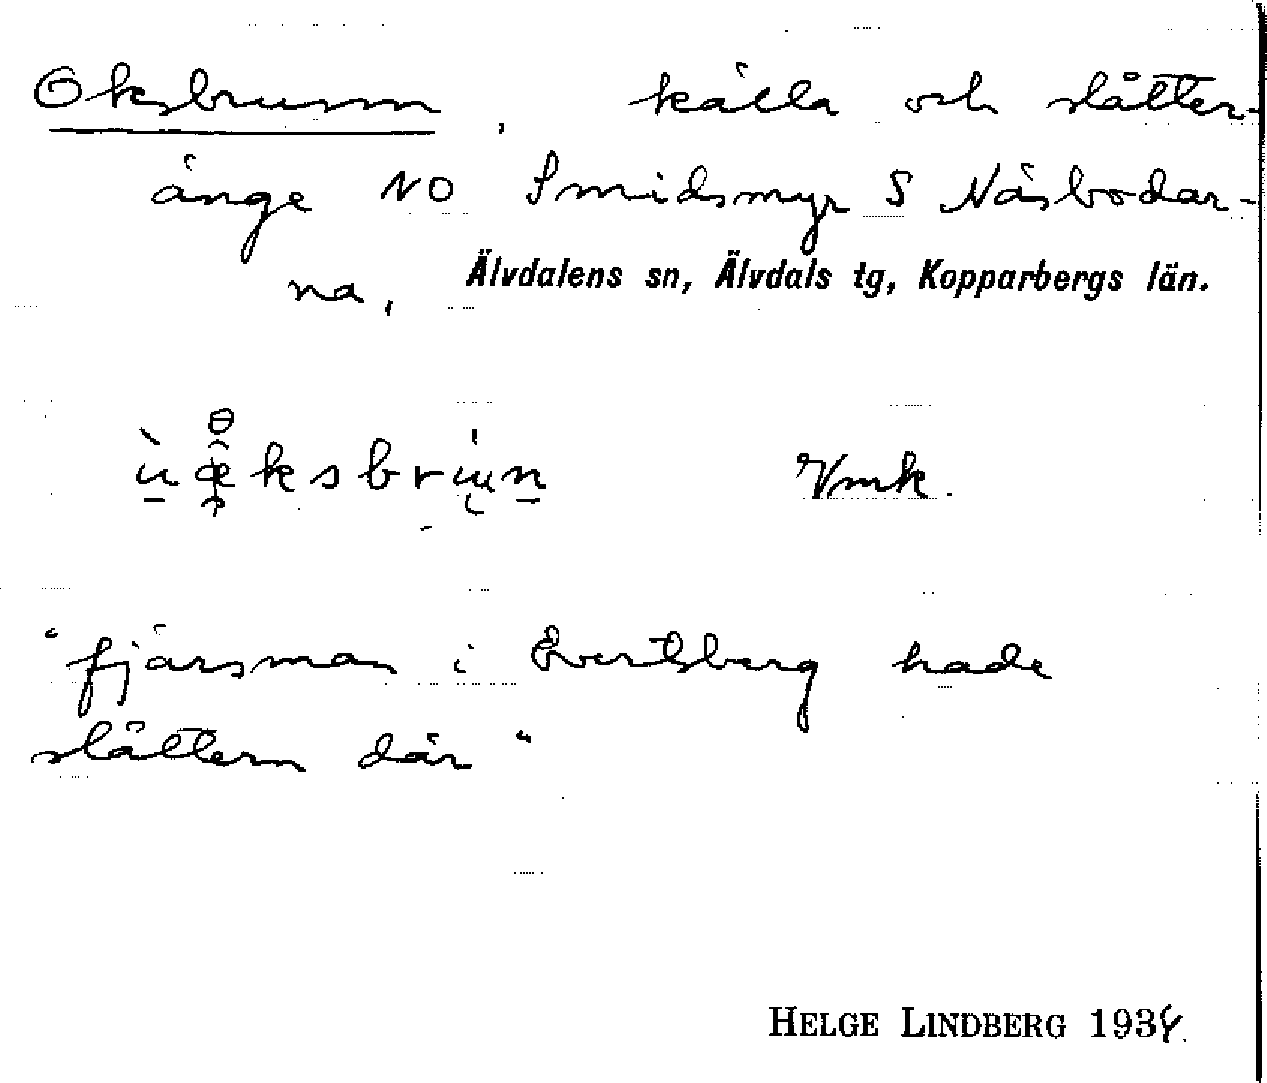 Oksbrunn, källa och slåtter-
änge NO Smidsmyr S Näsbodar-
na, Älvdalens sn, Älvdals tg, Kopparbergs län.
Vmk.
"fjärsman i Evertsberg hade
slåttern där"
HELGE LINDBERG 1934.